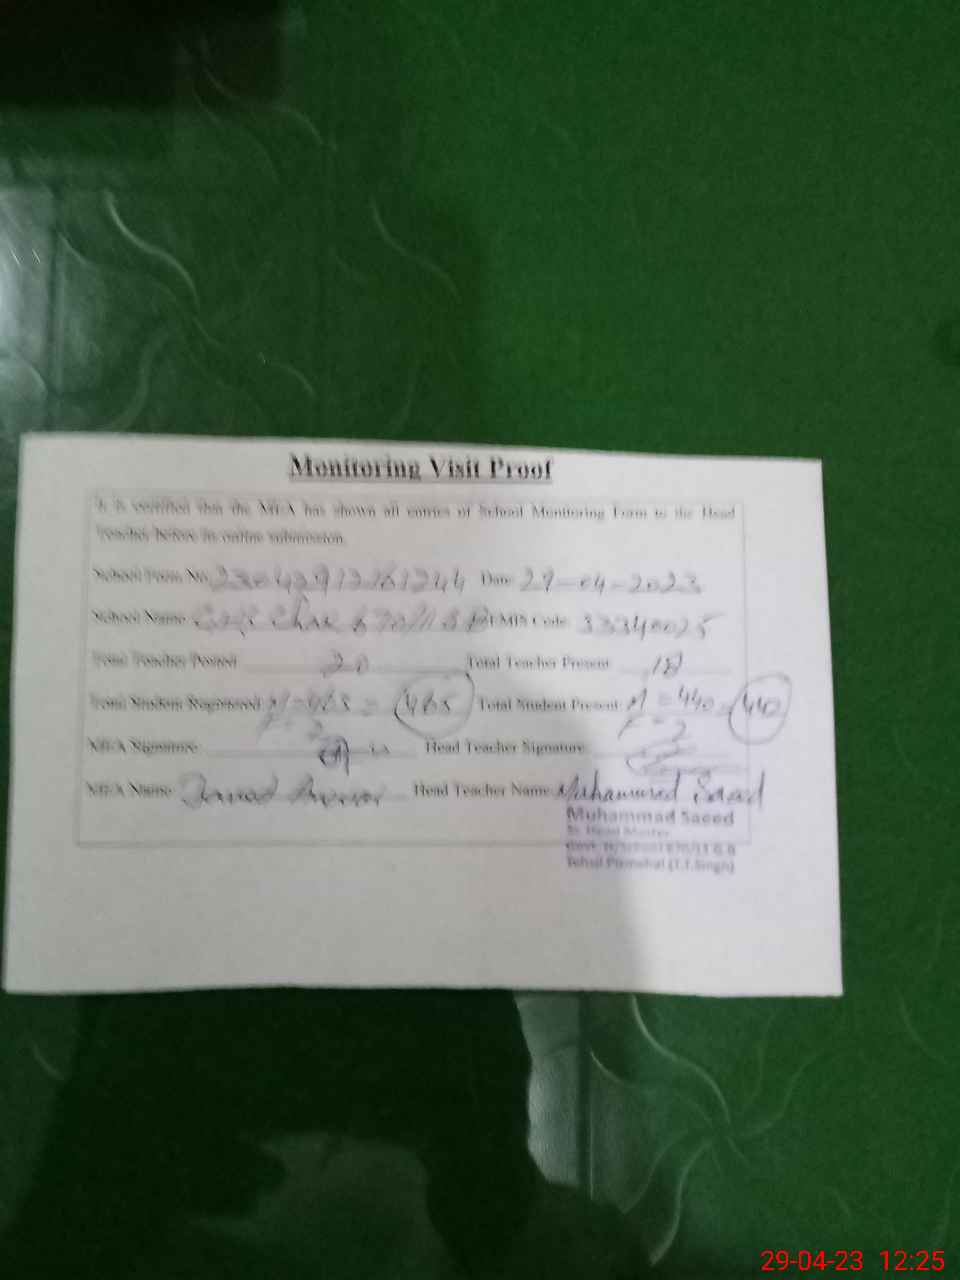 Monitoring Visit Proof
It is certified that the MEA has shown all entries of School Monitoring Form to the Head
Teacher before its online submission.
School Form No. Date 29-04-2023
School Name Chak 670/11 G B EMIS Code: 33340025
Total Teacher Posted 20 Total Teacher Present 18
Total Student Registered M=463 = 465 Total Student Present M = 440 = 440
F = 2 F = 2
MEA Signature Head Teacher Signature
MEA Name Head Teacher Name Muhammad Saeed
Muhammad Saeed
Sr. Head Master
Govt. H/School 670/11 G.B
Tehsil Pirmahal (T.T.Singh)
29-04-23 12:25